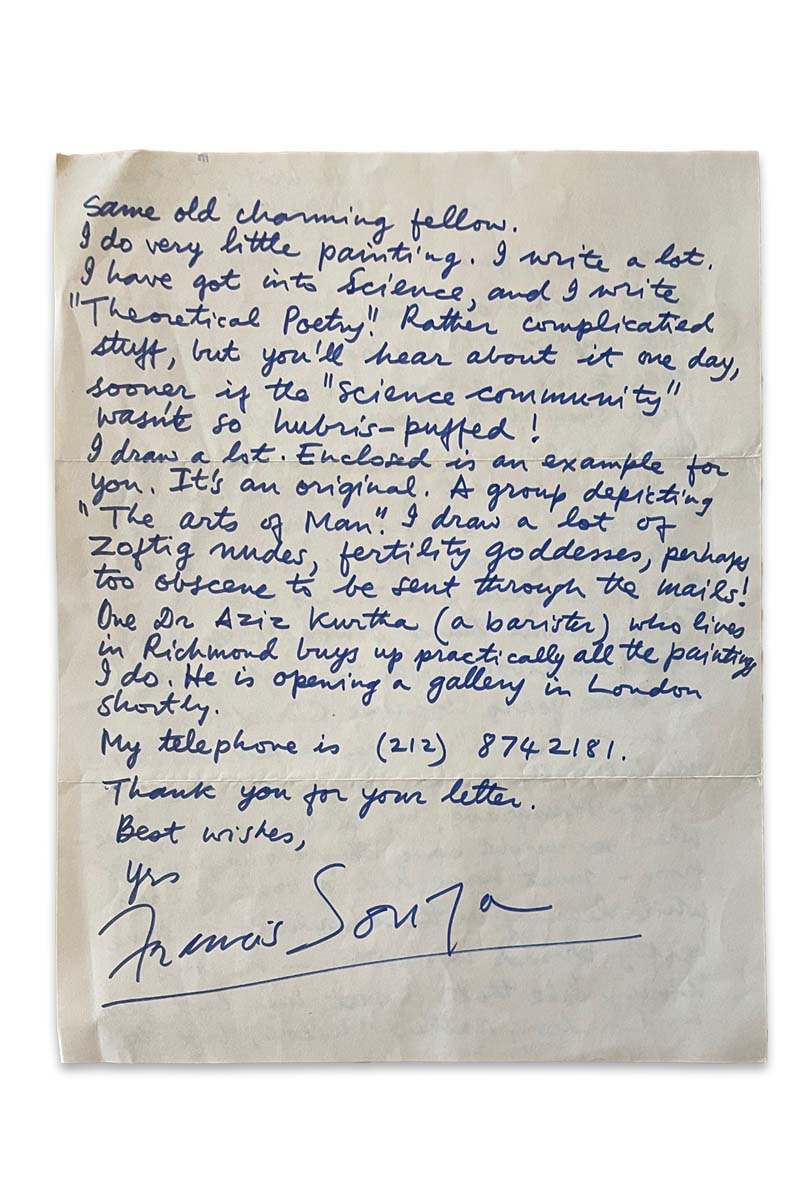 Same old charming fellow.
I do very little painting. I write a lot.
I have got into Science, and I write
"Theoretical Poetry". Rather complicatied
stuff, but you'll hear about it one day,
sooner if the "science community"
wasn't so hubris-puffed!
I draw a lot. Enclosed is an example for
you. It's an original. A group depicting
"The arts of Man". I draw a lot of
Zoftig nudes, fertility goddesses, perhaps
too obscene to be sent through the mails!
One Dr Aziz Kurtha (a barister) who lives
in Richmond buys up practically all the paintings
I do. He is opening a gallery in London
shortly.
My telephone is (212) 8742181.
Thank you for your letter.
Best wishes,
Yrs
Francis Souza